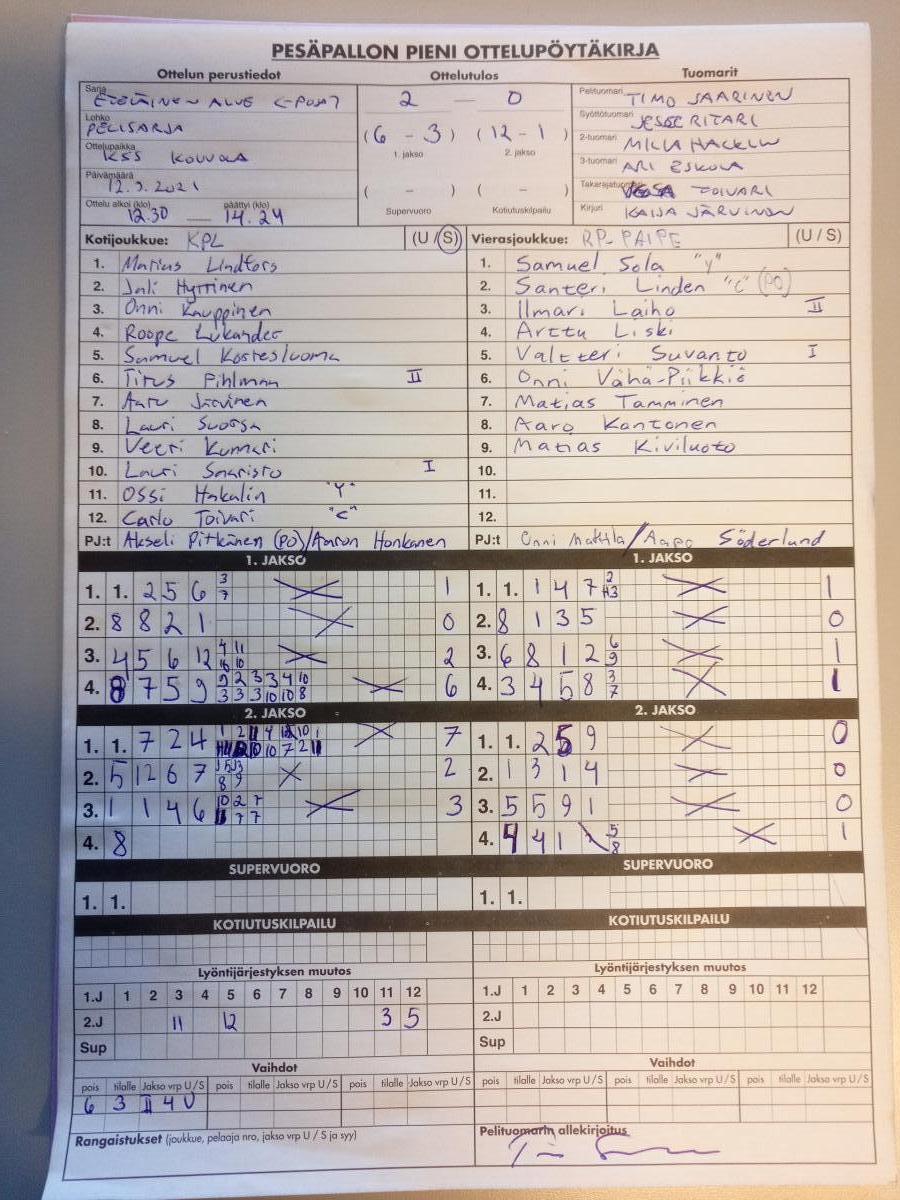 PESÄPALLON PIENI OTTELUPÖYTÄKIRJA
Ottelun perustiedot
Ottelutulos
Tuomarit
Sarja ETELÄINEN ALUE C-POJAT
Lohko PELISARJA
Ottelupaikka KSS KOUVOLA
Päivämäärä 12.9.2021
Ottelu alkoi (klo) 12.30 — päättyi (klo) 14.24
2 — 0
(6 - 3) (12 - 1)
1. jakso 2. jakso
( - ) ( - )
Supervuoro Kotiutuskilpailu
Pelituomari TIMO SAARINEN
Syöttötuomari JESSE RITARI
2-tuomari MILLA HACKLIN
3-tuomari ARI ESKOLA
Takarajatuomari VESA TOIVARI
Kirjuri KAIJA JÄRVINEN
Kotijoukkue: KPL (U / S)
1. Marius Lindfors
2. Jali Hyrtinen
3. Onni Kauppinen
4. Roope Lukander
5. Samuel Kostesluoma
6. Titus Pihlman II
7. Aaru Järvinen
8. Lauri Suorsa
9. Veeti Kunnari
10. Lauri Saaristo I
11. Ossi Hakalin "Y"
12. Carlo Toivari "C"
PJ:t Akseli Pitkänen (PO)/Aaron Honkanen
Vierasjoukkue: RP-PAIPE (U / S)
1. Samuel Sola "Y"
2. Santeri Linden "C" (PO)
3. Ilmari Laiho II
4. Arttu Liski
5. Valtteri Suvanto I
6. Onni Vähä-Piikkiö
7. Matias Tamminen
8. Aaro Kantonen
9. Matias Kiviluoto
10.
11.
12.
PJ:t Onni Mattila/Aapo Söderlund
1. JAKSO
1. 1. 2 5 6 3 7 1
2. 8 8 2 1 0
3. 4 5 6 12 2
4. 8 7 5 9 6
2. JAKSO
1. 1. 7 2 4 7
2. 5 12 6 7 2
3. 1 1 4 6 3
4. 8
SUPERVUORO
1. 1.
KOTIUTUSKILPAILU
1. JAKSO
1. 1. 1 4 7 1
2. 8 1 3 5 0
3. 6 8 1 2 6 9 1
4. 3 4 5 8 3 7 1
2. JAKSO
1. 1. 2 5 9 0
2. 1 3 1 4 0
3. 5 5 9 1 0
4. 4 4 1 5 8 1
SUPERVUORO
1. 1.
KOTIUTUSKILPAILU
Lyöntijärjestyksen muutos
1.J 1 2 3 4 5 6 7 8 9 10 11 12
2.J 11 12 3 5
Sup
Vaihdot
pois tilalle Jakso vrp U/S pois tilalle Jakso vrp U/S pois tilalle Jakso vrp U/S
6 3 II 4 U
Rangaistukset (joukkue, pelaaja nro, jakso vrp U / S ja syy)
Lyöntijärjestyksen muutos
1.J 1 2 3 4 5 6 7 8 9 10 11 12
2.J
Sup
Vaihdot
pois tilalle Jakso vrp U/S pois tilalle Jakso vrp U/S pois tilalle Jakso vrp U/S
Pelituomarin allekirjoitus